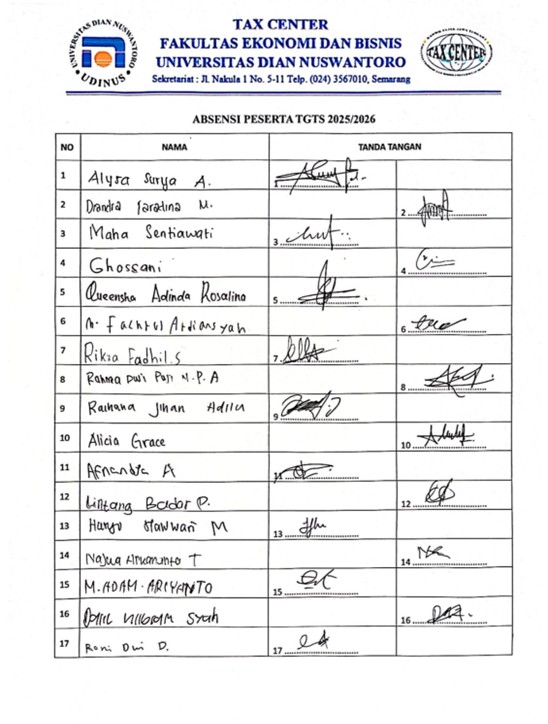 UNIVERSITAS DIAN NUSWANTORO
UDINUS
TAX CENTER
FAKULTAS EKONOMI DAN BISNIS
UNIVERSITAS DIAN NUSWANTORO
Sekretariat : Jl. Nakula 1 No. 5-11 Telp. (024) 3567010, Semarang
TAX CENTER
ABSENSI PESERTA TGTS 2025/2026
NO NAMA TANDA TANGAN
1 Alysa Surya A. 1
2 M. 2
3 Maha Sentiawati 3
4 Ghossani 4
5 Queensha Adinda Rosalina 5
6 M. Fachrul Ardiansyah 6
7 Rikza Fadhil.S 7
8 Rahma Dwi Puji M.P.A 8
9 Raihana Jihan Adilla 9
10 Alicia Grace 10
11 A 11
12 Lintang P. 12
13 M 13
14 Najwa T 14
15 M.ADAM.ARIYANTO 15
16 Syah 16
17 Roni Dwi D. 17